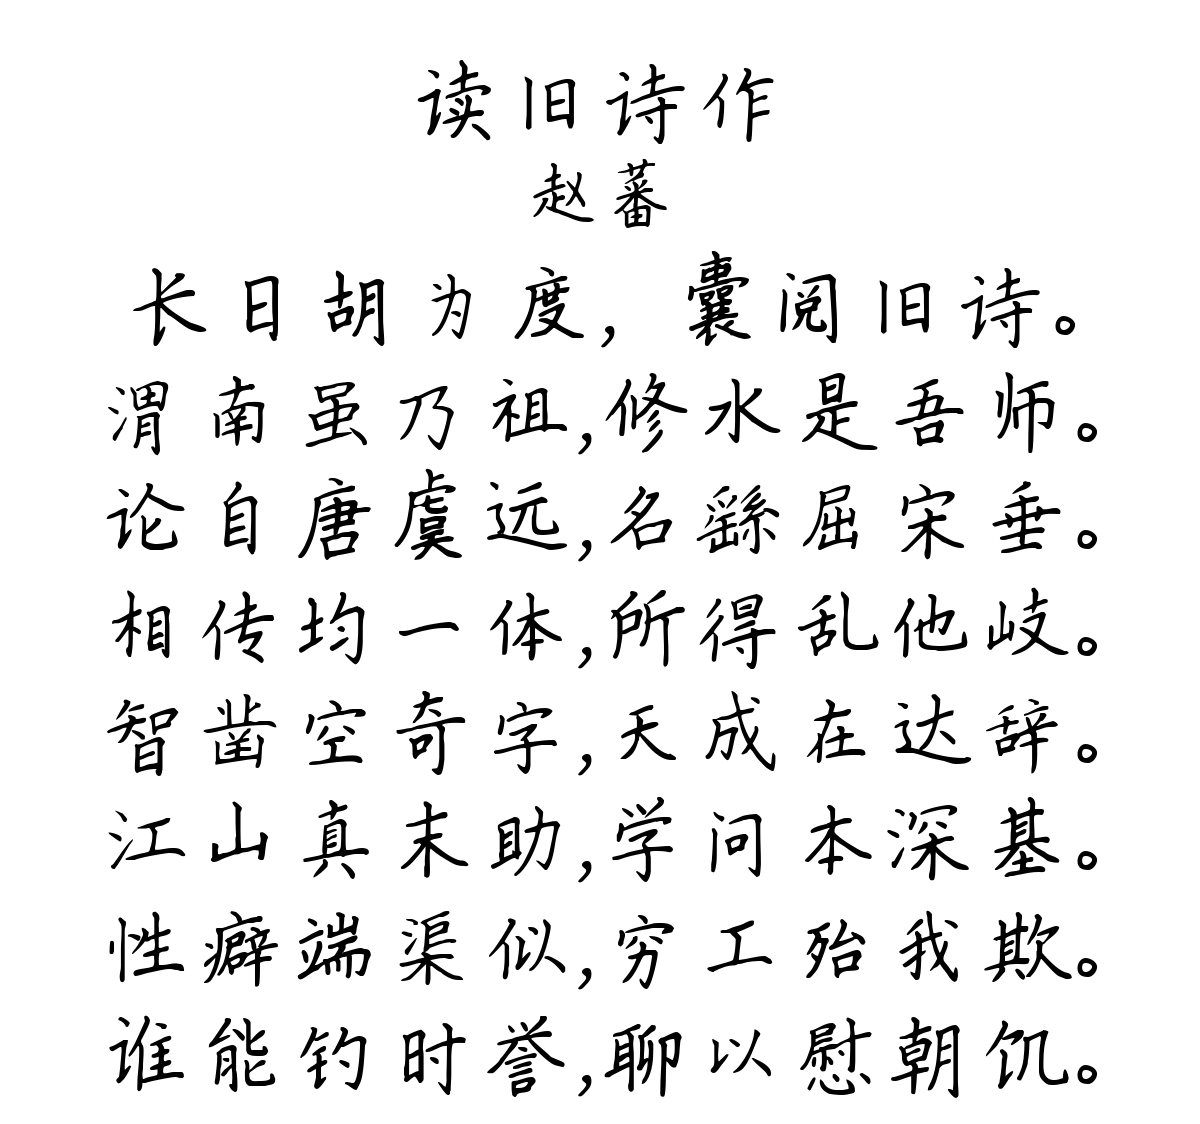 读旧诗作
赵蕃
长日胡为度，囊阅旧诗。
渭南虽乃祖，修水是吾师。
论自唐虞远，名繇屈宋垂。
相传均一体，所得乱他歧。
智凿空奇字，天成在达辞。
江山真末助，学问本深基。
性癖端渠似，穷工殆我欺。
谁能钓时誉，聊以慰朝饥。